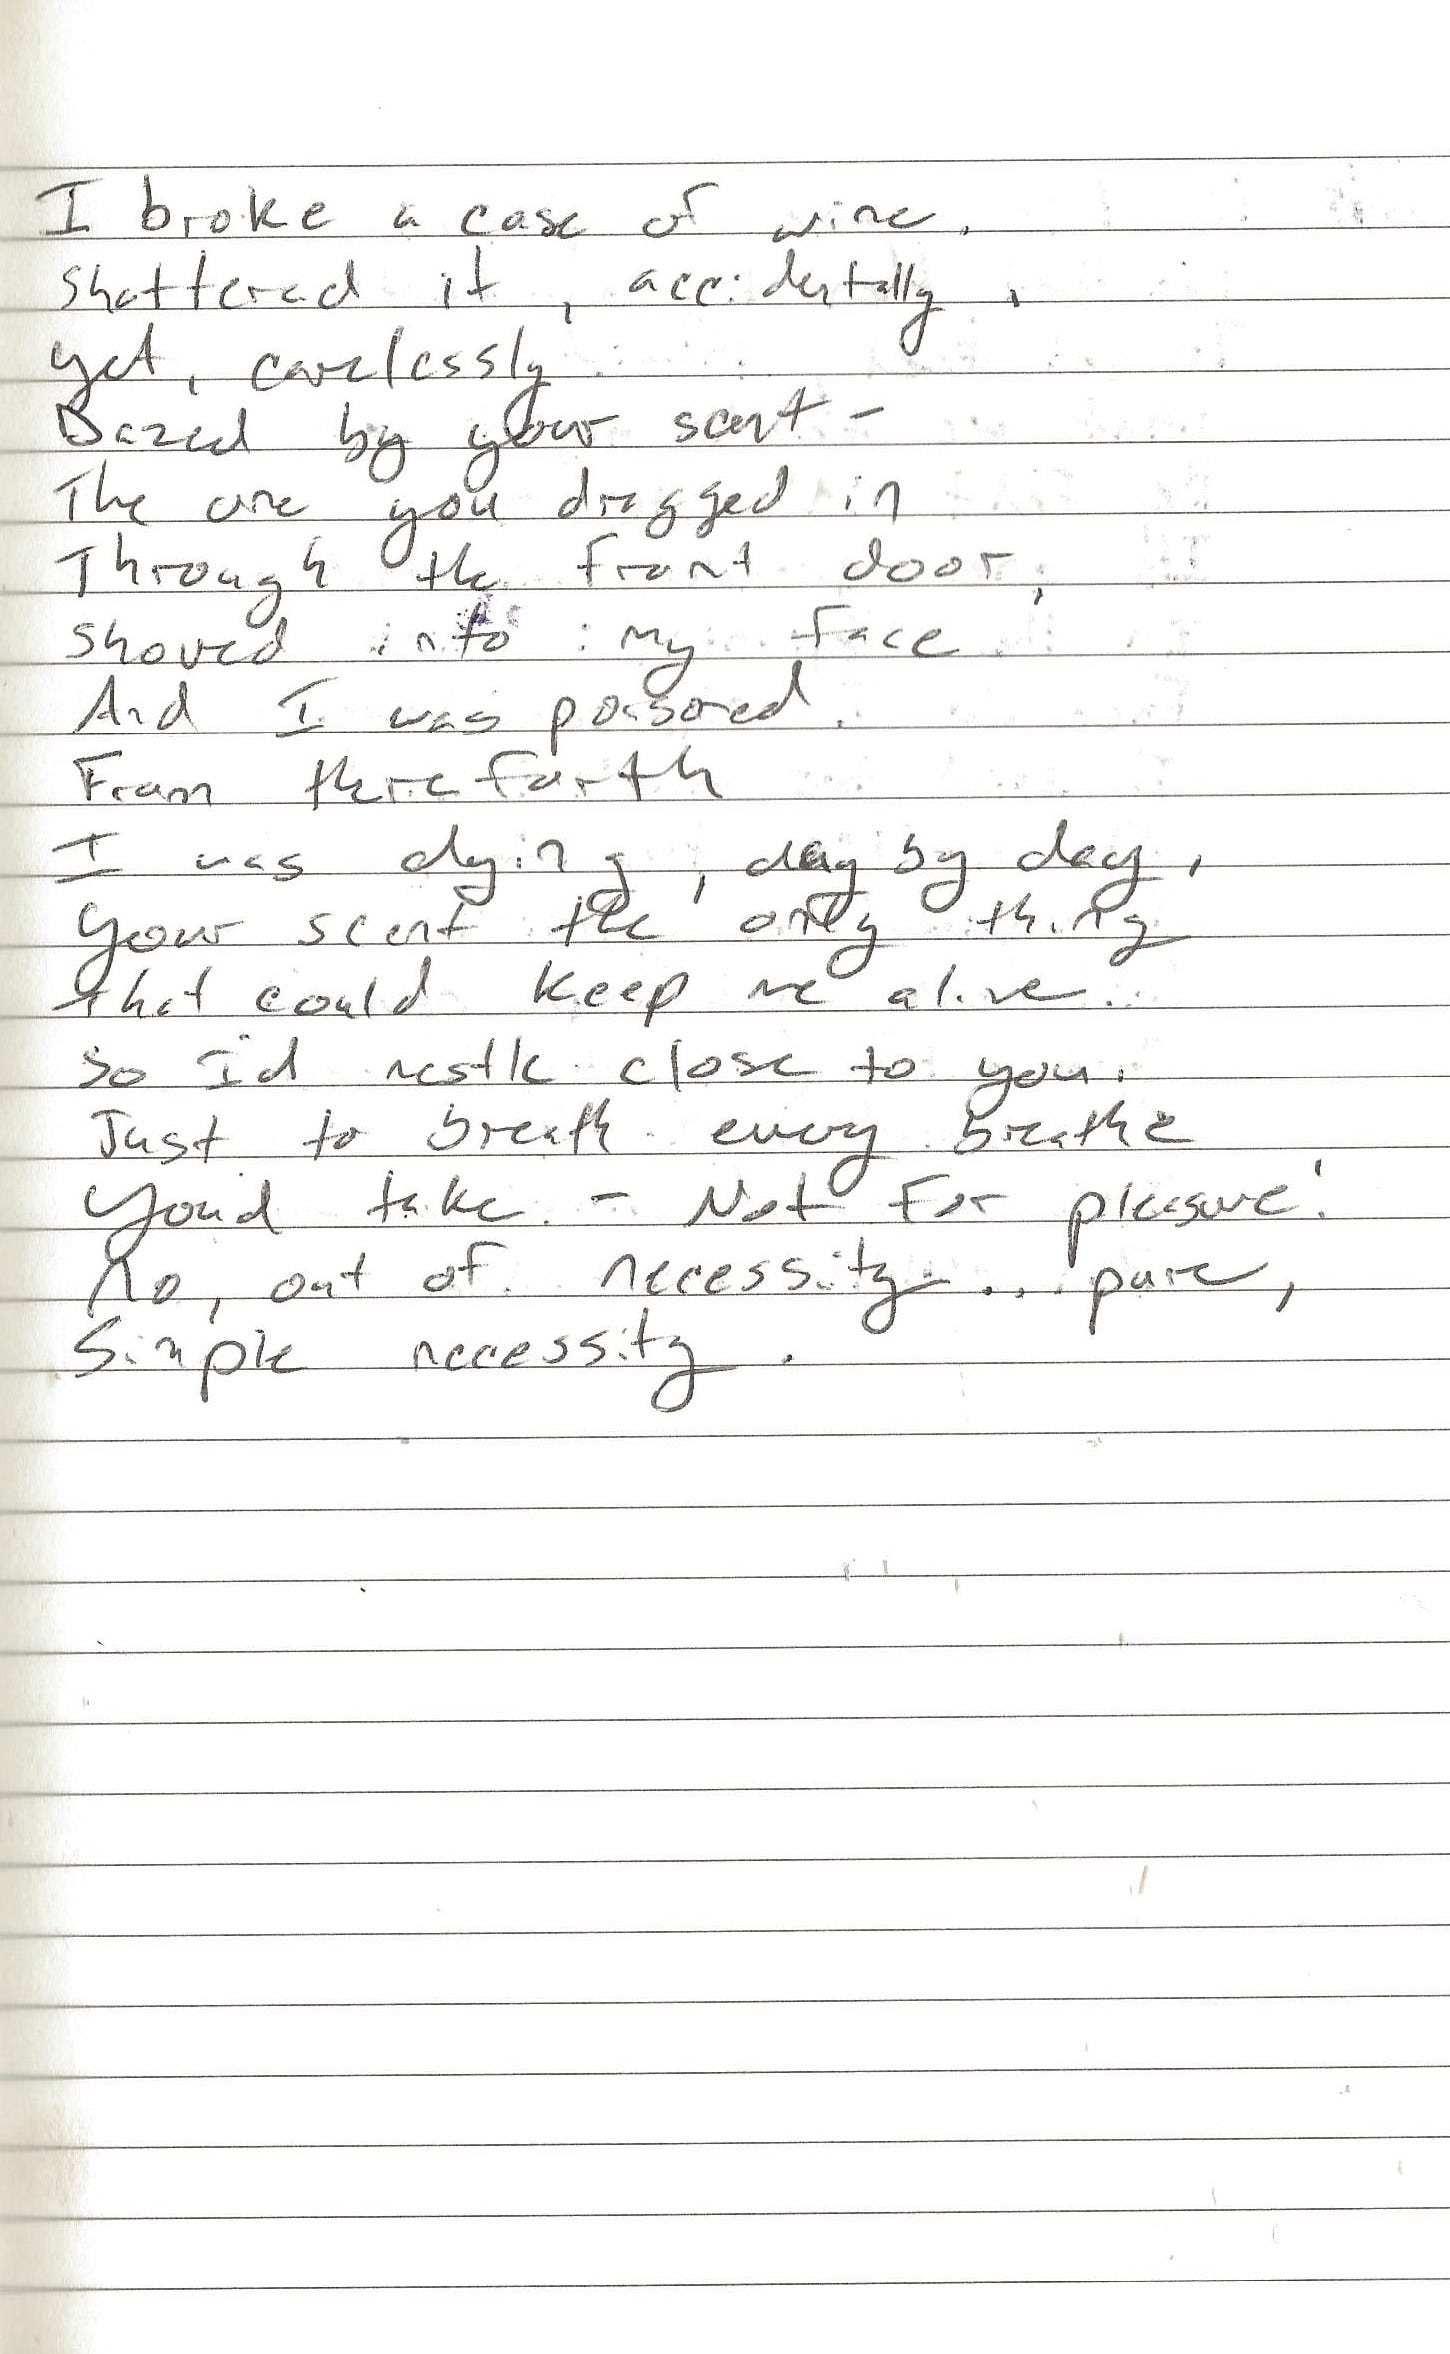 I broke a case of wine.
Shattered it, accidentally,
yet, carelessly
Dazed by your scent -
The one you dragged in
Through the front door,
shoved into my face
And I was poisoned.
From therеforth
I was dying, day by day,
Your scent the only thing
that could keep me alive..
So I'd nestle close to you.
Just to breath every breathe
You'd take - Not for pleasure!
No, out of necessity... pure,
Simple necessity.